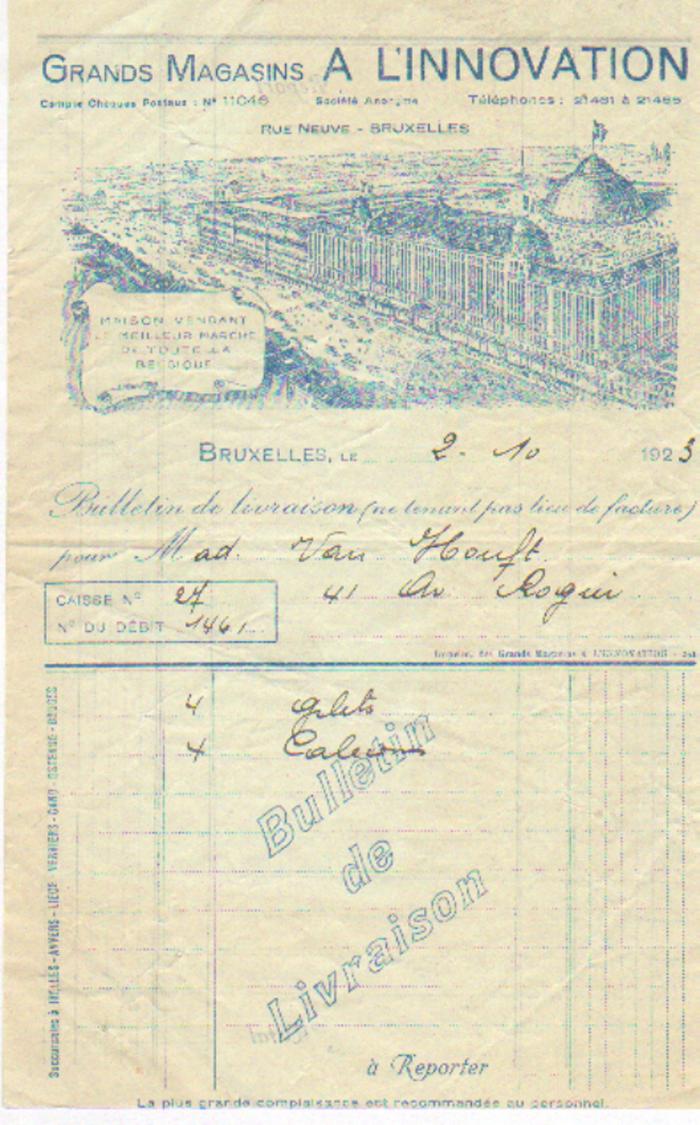 GRANDS MAGASINS A L'INNOVATION
Compte Chèques Postaux : Nº 11046 Société Anonyme Téléphones : 21461 à 21465
RUE NEUVE - BRUXELLES
MAISON VENDANT
LE MEILLEUR MARCHÉ
DE TOUTE LA
BELGIQUE
BRUXELLES, LE 2 - 10 1923
Bulletin de livraison (ne tenant pas lieu de facture)
pour Mad. Van
41 Av
CAISSE Nº 27
Nº DU DÉBIT 1461
des Grands Magasins à L'INNOVATION
4 gilets
4 Caleçons
Bulletin
de
Livraison
à Reporter
Succursales à IXELLES - ANVERS - LIEGE - VERVIERS - GAND - OSTENDE - BRUGES
La plus grande complaisance est recommandée au personnel.